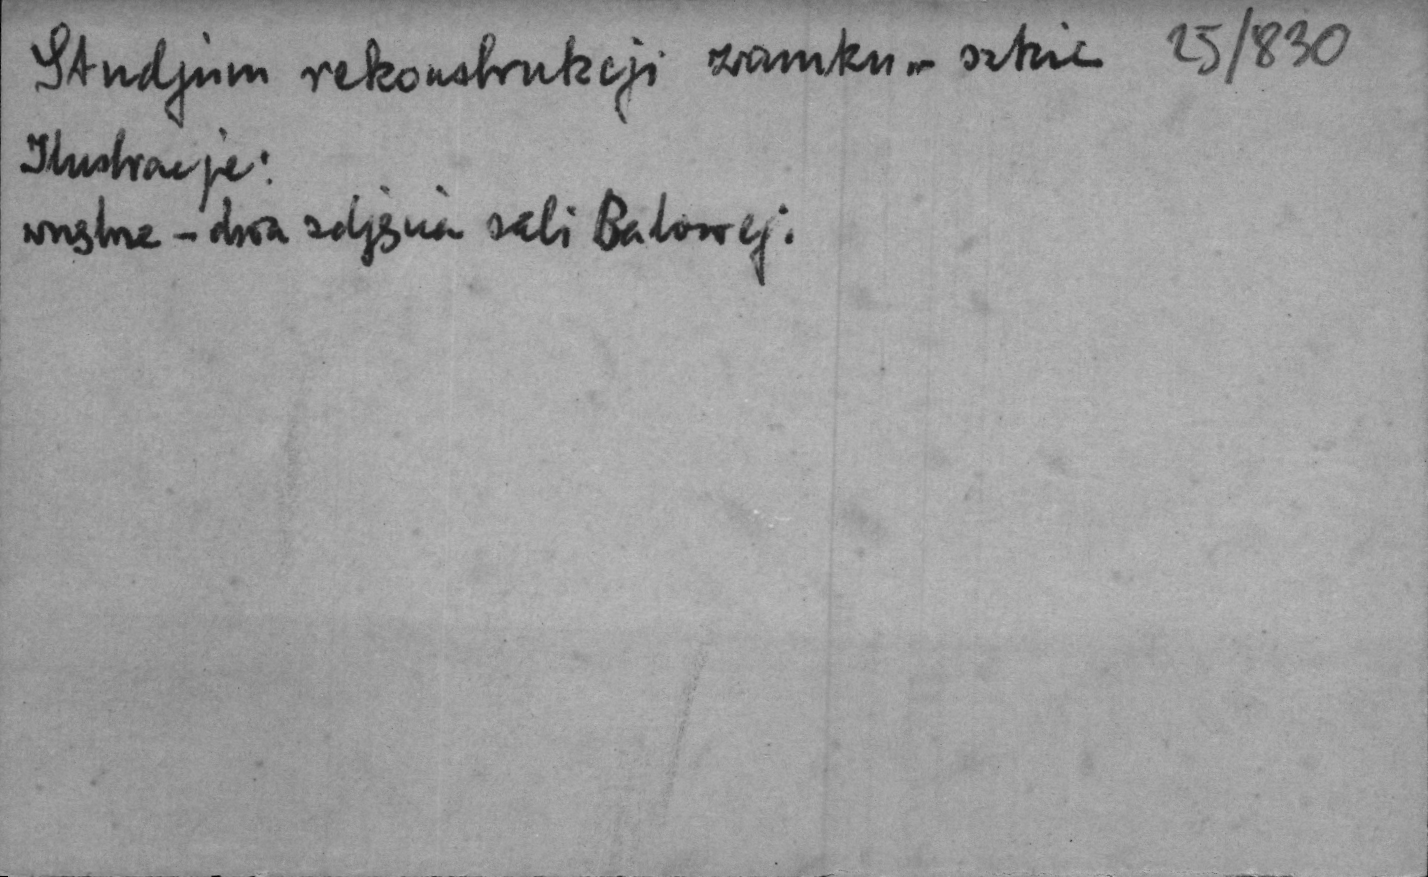 Studjum rekonstrukcji zamku - szkic 25/830
Ilustracje:
wnętrze - dwa zdjęcia sali Balowej.